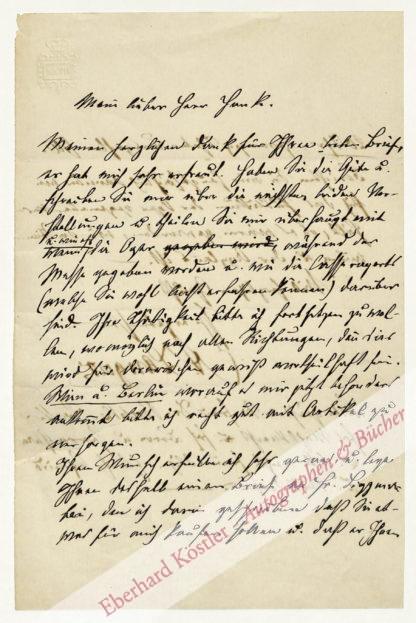 Mein lieber Herr Hank.
Meinen herzlichen Dank für Ihren lieben Brief,
er hat mich sehr erfreut. Haben Sie die Güte u.
schreiben Sie mir über die nächsten beiden Vor-
stellungen u. theilen Sie mir überhaupt mit
wann die Oper gegeben wird, während der
Messe gegeben werden u. wie die Cassenrapports
(welche Sie wohl leicht erfahren können) darüber
sind. Ihre Thätigkeit bitte ich fortsetzen zu wol-
len, womöglich nach allen Richtungen, denn dies
wird für gewiß vortheilhaft sein.
Wien u. Berlin worauf es mir jetzt besonders
ankommt bitte ich recht gut mit Artikel zu
versorgen.
Ihren Wunsch erfülle ich sehr gerne, u. lege
Ihnen deshalb einen Brief an H.
bei, den ich darin geschrieben daß Sie et-
was für mich kaufen sollen u. daß er Ihnen
Eberhard Köstler Autographen & Bücher